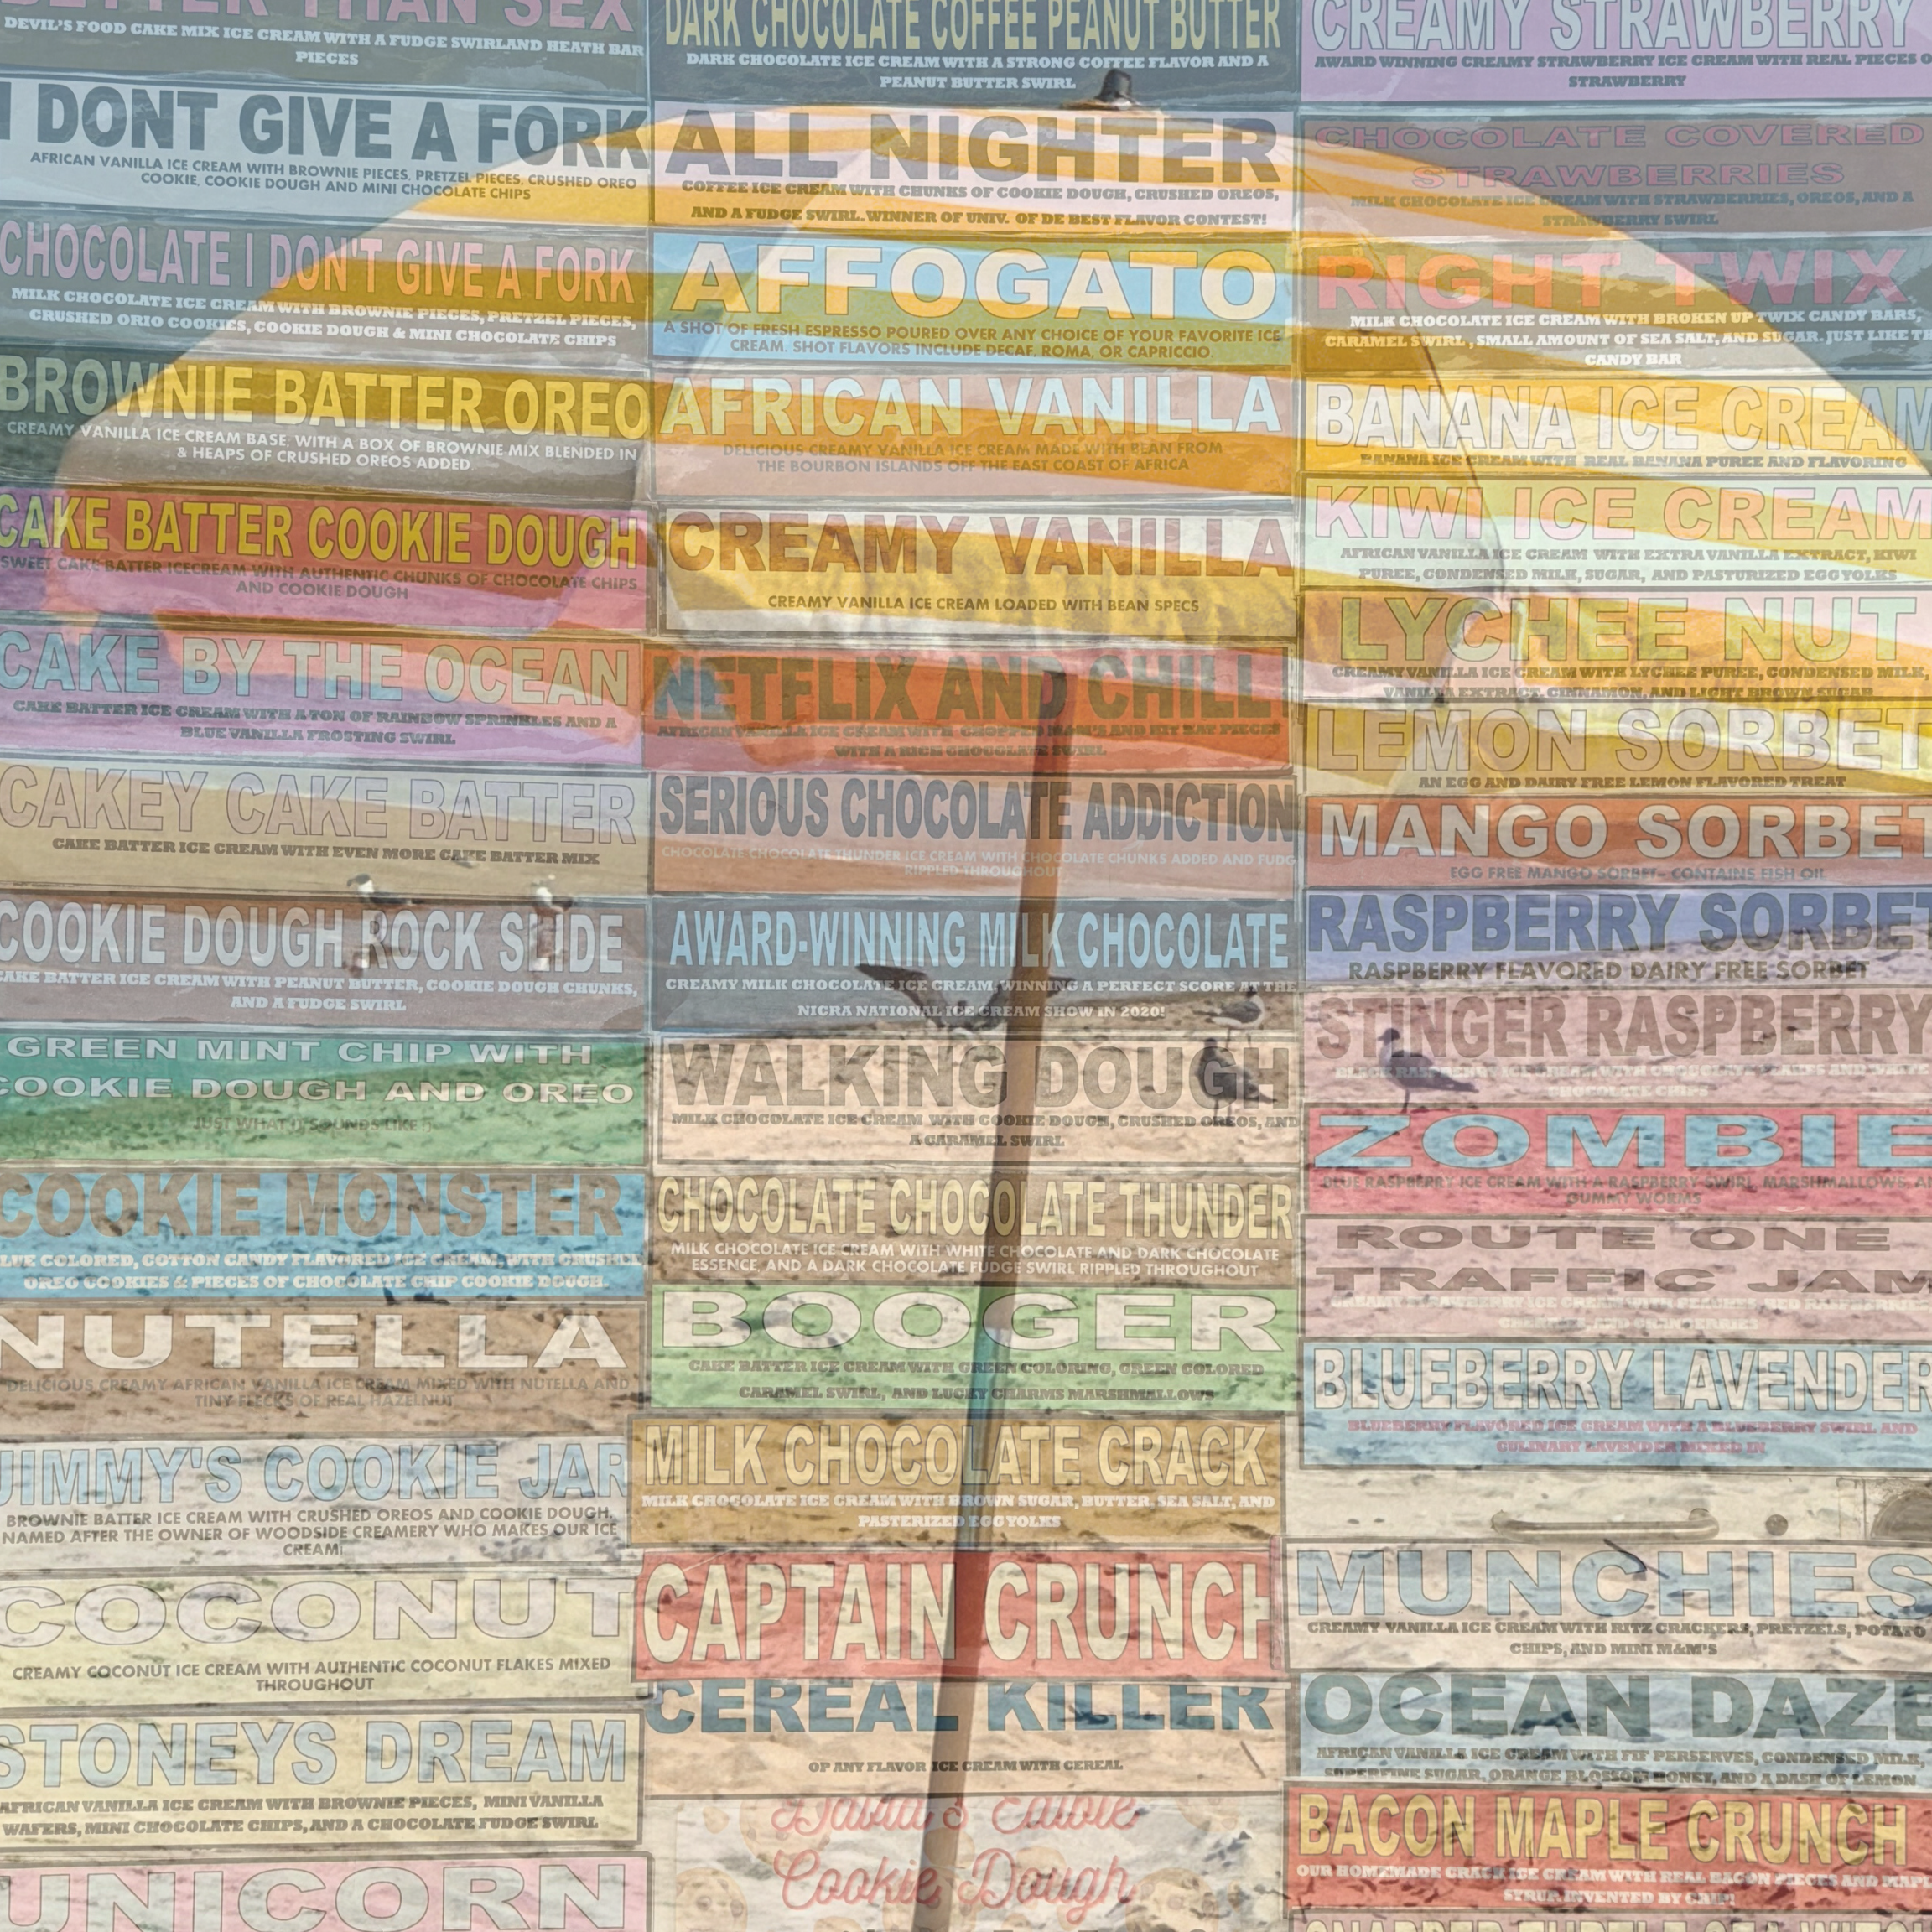 BETTER THAN SEX
DEVIL'S FOOD CAKE MIX ICE CREAM WITH A FUDGE SWIRLAND HEATH BAR
PIECES
I DONT GIVE A FORK
AFRICAN VANILLA ICE CREAM WITH BROWNIE PIECES, PRETZEL PIECES, CRUSHED OREO
COOKIE, COOKIE DOUGH AND MINI CHOCOLATE CHIPS
CHOCOLATE I DON'T GIVE A FORK
MILK CHOCOLATE ICE CREAM WITH BROWNIE PIECES, PRETZEL PIECES,
CRUSHED ORIO COOKIES, COOKIE DOUGH & MINI CHOCOLATE CHIPS
BROWNIE BATTER OREO
CREAMY VANILLA ICE CREAM BASE, WITH A BOX OF BROWNIE MIX BLENDED IN
& HEAPS OF CRUSHED OREOS ADDED
CAKE BATTER COOKIE DOUGH
SWEET CAKE BATTER ICECREAM WITH AUTHENTIC CHUNKS OF CHOCOLATE CHIPS
AND COOKIE DOUGH
CAKE BY THE OCEAN
CAKE BATTER ICE CREAM WITH A TON OF RAINBOW SPRINKLES AND A
BLUE VANILLA FROSTING SWIRL
CAKEY CAKE BATTER
CAKE BATTER ICE CREAM WITH EVEN MORE CAKE BATTER MIX
COOKIE DOUGH ROCK SLIDE
CAKE BATTER ICE CREAM WITH PEANUT BUTTER, COOKIE DOUGH CHUNKS,
AND A FUDGE SWIRL
GREEN MINT CHIP WITH
COOKIE DOUGH AND OREO
JUST WHAT IT SOUNDS LIKE
COOKIE MONSTER
BLUE COLORED, COTTON CANDY FLAVORED ICE CREAM, WITH CRUSHED
OREO COOKIES & PIECES OF CHOCOLATE CHIP COOKIE DOUGH.
NUTELLA
DELICIOUS CREAMY AFRICAN VANILLA ICE CREAM MIXED WITH NUTELLA AND
TINY FLECKS OF REAL HAZELNUT
JIMMY'S COOKIE JAR
BROWNIE BATTER ICE CREAM WITH CRUSHED OREOS AND COOKIE DOUGH.
NAMED AFTER THE OWNER OF WOODSIDE CREAMERY WHO MAKES OUR ICE
CREAM!
COCONUT
CREAMY COCONUT ICE CREAM WITH AUTHENTIC COCONUT FLAKES MIXED
THROUGHOUT
STONEYS DREAM
AFRICAN VANILLA ICE CREAM WITH BROWNIE PIECES, MINI VANILLA
WAFERS, MINI CHOCOLATE CHIPS, AND A CHOCOLATE FUDGE SWIRL
UNICORN
DARK CHOCOLATE COFFEE PEANUT BUTTER
DARK CHOCOLATE ICE CREAM WITH A STRONG COFFEE FLAVOR AND A
PEANUT BUTTER SWIRL
ALL NIGHTER
COFFEE ICE CREAM WITH CHUNKS OF COOKIE DOUGH, CRUSHED OREOS,
AND A FUDGE SWIRL. WINNER OF UNIV. OF DE BEST FLAVOR CONTEST!
AFFOGATO
A SHOT OF FRESH ESPRESSO POURED OVER ANY CHOICE OF YOUR FAVORITE ICE
CREAM. SHOT FLAVORS INCLUDE DECAF, ROMA, OR CAPRICCIO.
AFRICAN VANILLA
DELICIOUS CREAMY VANILLA ICE CREAM MADE WITH BEAN FROM
THE BOURBON ISLANDS OFF THE EAST COAST OF AFRICA
CREAMY VANILLA
CREAMY VANILLA ICE CREAM LOADED WITH BEAN SPECS
NETFLIX AND CHILL
AFRICAN VANILLA ICE CREAM WITH CHOPPED M&M'S AND KIT KAT PIECES
WITH A RICH CHOCOLATE SWIRL
SERIOUS CHOCOLATE ADDICTION
CHOCOLATE CHOCOLATE THUNDER ICE CREAM WITH CHOCOLATE CHUNKS ADDED AND FUDG
RIPPLED THROUGHOUT
AWARD-WINNING MILK CHOCOLATE
CREAMY MILK CHOCOLATE ICE CREAM, WINNING A PERFECT SCORE AT THE
NICRA NATIONAL ICE CREAM SHOW IN 2020!
WALKING DOUGH
MILK CHOCOLATE ICE CREAM WITH COOKIE DOUGH, CRUSHED OREOS, AND
A CARAMEL SWIRL
CHOCOLATE CHOCOLATE THUNDER
MILK CHOCOLATE ICE CREAM WITH WHITE CHOCOLATE AND DARK CHOCOLATE
ESSENCE, AND A DARK CHOCOLATE FUDGE SWIRL RIPPLED THROUGHOUT
BOOGER
CAKE BATTER ICE CREAM WITH GREEN COLORING, GREEN COLORED
CARAMEL SWIRL, AND LUCKY CHARMS MARSHMALLOWS
MILK CHOCOLATE CRACK
MILK CHOCOLATE ICE CREAM WITH BROWN SUGAR, BUTTER, SEA SALT, AND
PASTERIZED EGG YOLKS
CAPTAIN CRUNCH
CEREAL KILLER
OF ANY FLAVOR ICE CREAM WITH CEREAL
David's Edible
Cookie Dough
CREAMY STRAWBERRY
AWARD WINNING CREAMY STRAWBERRY ICE CREAM WITH REAL PIECES O
STRAWBERRY
CHOCOLATE COVERED
STRAWBERRIES
MILK CHOCOLATE ICE CREAM WITH STRAWBERRIES, OREOS, AND A
STRAWBERRY SWIRL
RIGHT TWIX
MILK CHOCOLATE ICE CREAM WITH BROKEN UP TWIX CANDY BARS,
CARAMEL SWIRL , SMALL AMOUNT OF SEA SALT, AND SUGAR. JUST LIKE TH
CANDY BAR
BANANA ICE CREAM
BANANA ICE CREAM WITH REAL BANANA PUREE AND FLAVORING
KIWI ICE CREAM
AFRICAN VANILLA ICE CREAM WITH EXTRA VANILLA EXTRACT, KIWI
PUREE, CONDENSED MILK, SUGAR, AND PASTURIZED EGG YOLKS
LYCHEE NUT
CREAMY VANILLA ICE CREAM WITH LYCHEE PUREE, CONDENSED MILK,
VANILLA EXTRACT, CINNAMON, AND LIGHT BROWN SUGAR
LEMON SORBET
AN EGG AND DAIRY FREE LEMON FLAVORED TREAT
MANGO SORBET
EGG FREE MANGO SORBET- CONTAINS FISH OIL
RASPBERRY SORBET
RASPBERRY FLAVORED DAIRY FREE SORBET
STINGER RASPBERRY
BLACK RASPBERRY ICE CREAM WITH CHOCOLATE FLAKES AND WHITE
CHOCOLATE CHIPS
ZOMBIE
BLUE RASPBERRY ICE CREAM WITH A RASPBERRY SWIRL, MARSHMALLOWS, AN
GUMMY WORMS
ROUTE ONE
TRAFFIC JAM
CREAMY STRAWBERRY ICE CREAM WITH PEACHES, RED RASPBERRIES,
CHERRIES, AND CRANBERRIES
BLUEBERRY LAVENDER
BLUEBERRY FLAVORED ICE CREAM WITH A BLUEBERRY SWIRL AND
CULINARY LAVENDER MIXED IN
MUNCHIES
CREAMY VANILLA ICE CREAM WITH RITZ CRACKERS, PRETZELS, POTATO
CHIPS, AND MINI M&M'S
OCEAN DAZE
AFRICAN VANILLA ICE CREAM WITH FIF PERSERVES, CONDENSED MILK,
SUPERFINE SUGAR, ORANGE BLOSSOM HONEY, AND A DASH OF LEMON
BACON MAPLE CRUNCH
OUR HOMEMADE CRACK ICE CREAM WITH REAL BACON PIECES AND MAPL
SYRUP. INVENTED BY